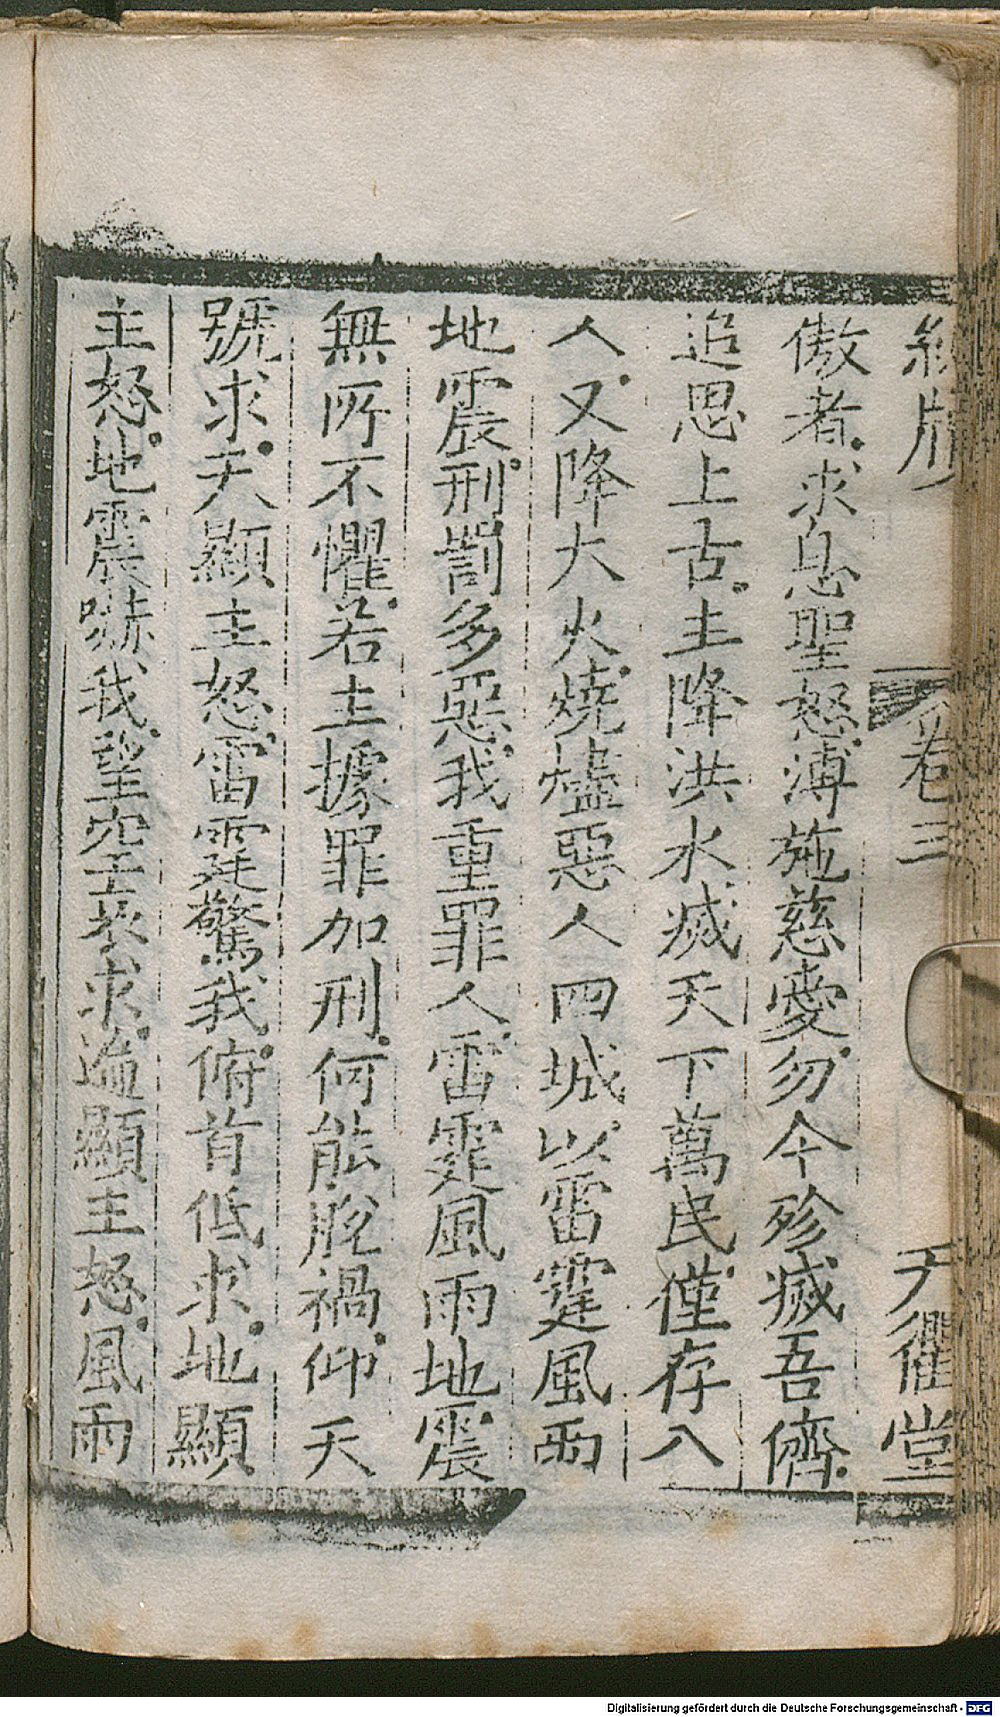 卷三
天衢堂
傲者求息聖怒溥施慈愛勿令殄滅吾儕
追思上古主降洪水滅天下萬民僅存八
人又降大火燒燼惡人四城以雷霆風雨
地震刑罰多惡我重罪人雷霆風雨地震
無所不懼若主據罪加刑何能脫禍仰天
號求天顯主怒雷霆驚我俯首低求地顯
主怒地震嚇我望空哀求顯主怒風雨
Digitalisierung gefördert durch die Deutsche Forschungsgemeinschaft - DFG